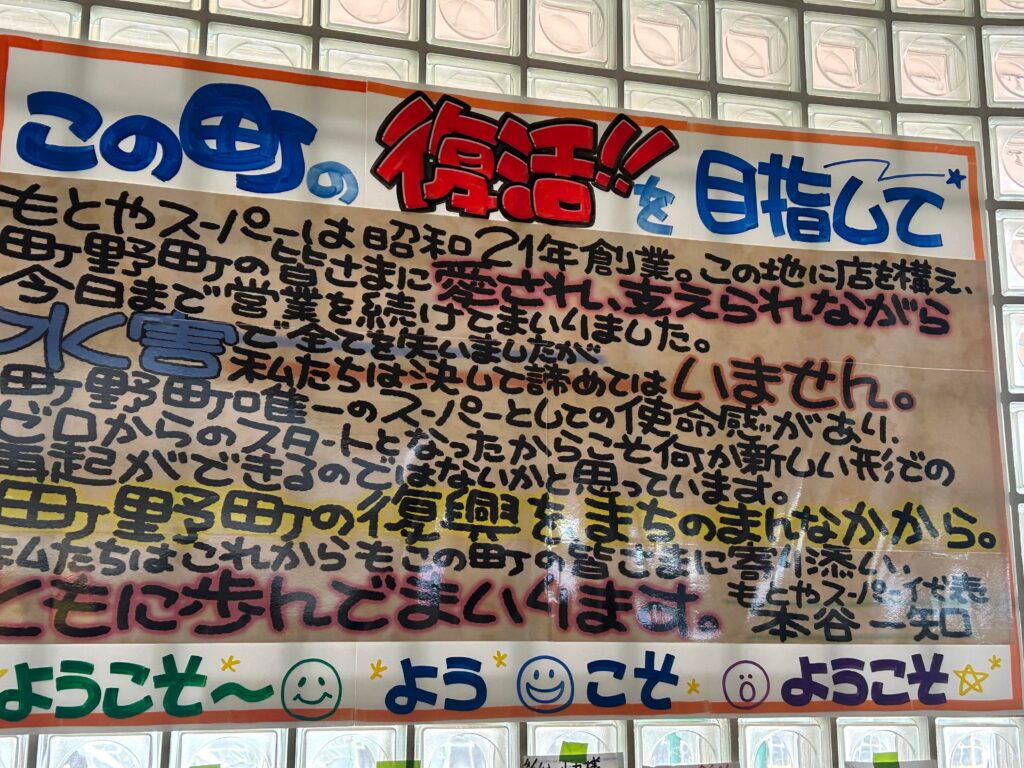 この町の復活!!を目指して
もとやスーパーは昭和21年創業。この地に店を構え、
町野町の皆さまに愛され、支えられながら
今日まで営業を続けてまいりました。
水害で全てを失いましたが
私たちは決して諦めてはいません。
町野町唯一のスーパーとしての使命感があり、
ゼロからのスタートとなったからこそ何か新しい形での
再起ができるのではないかと思っています。
町野町の復興をまちのまんなかから。
私たちはこれからもこの町の皆さまに寄り添い、
ともに歩んでまいります。
もとやスーパー代表
本谷一知
ようこそ〜 ようこそ ようこそ